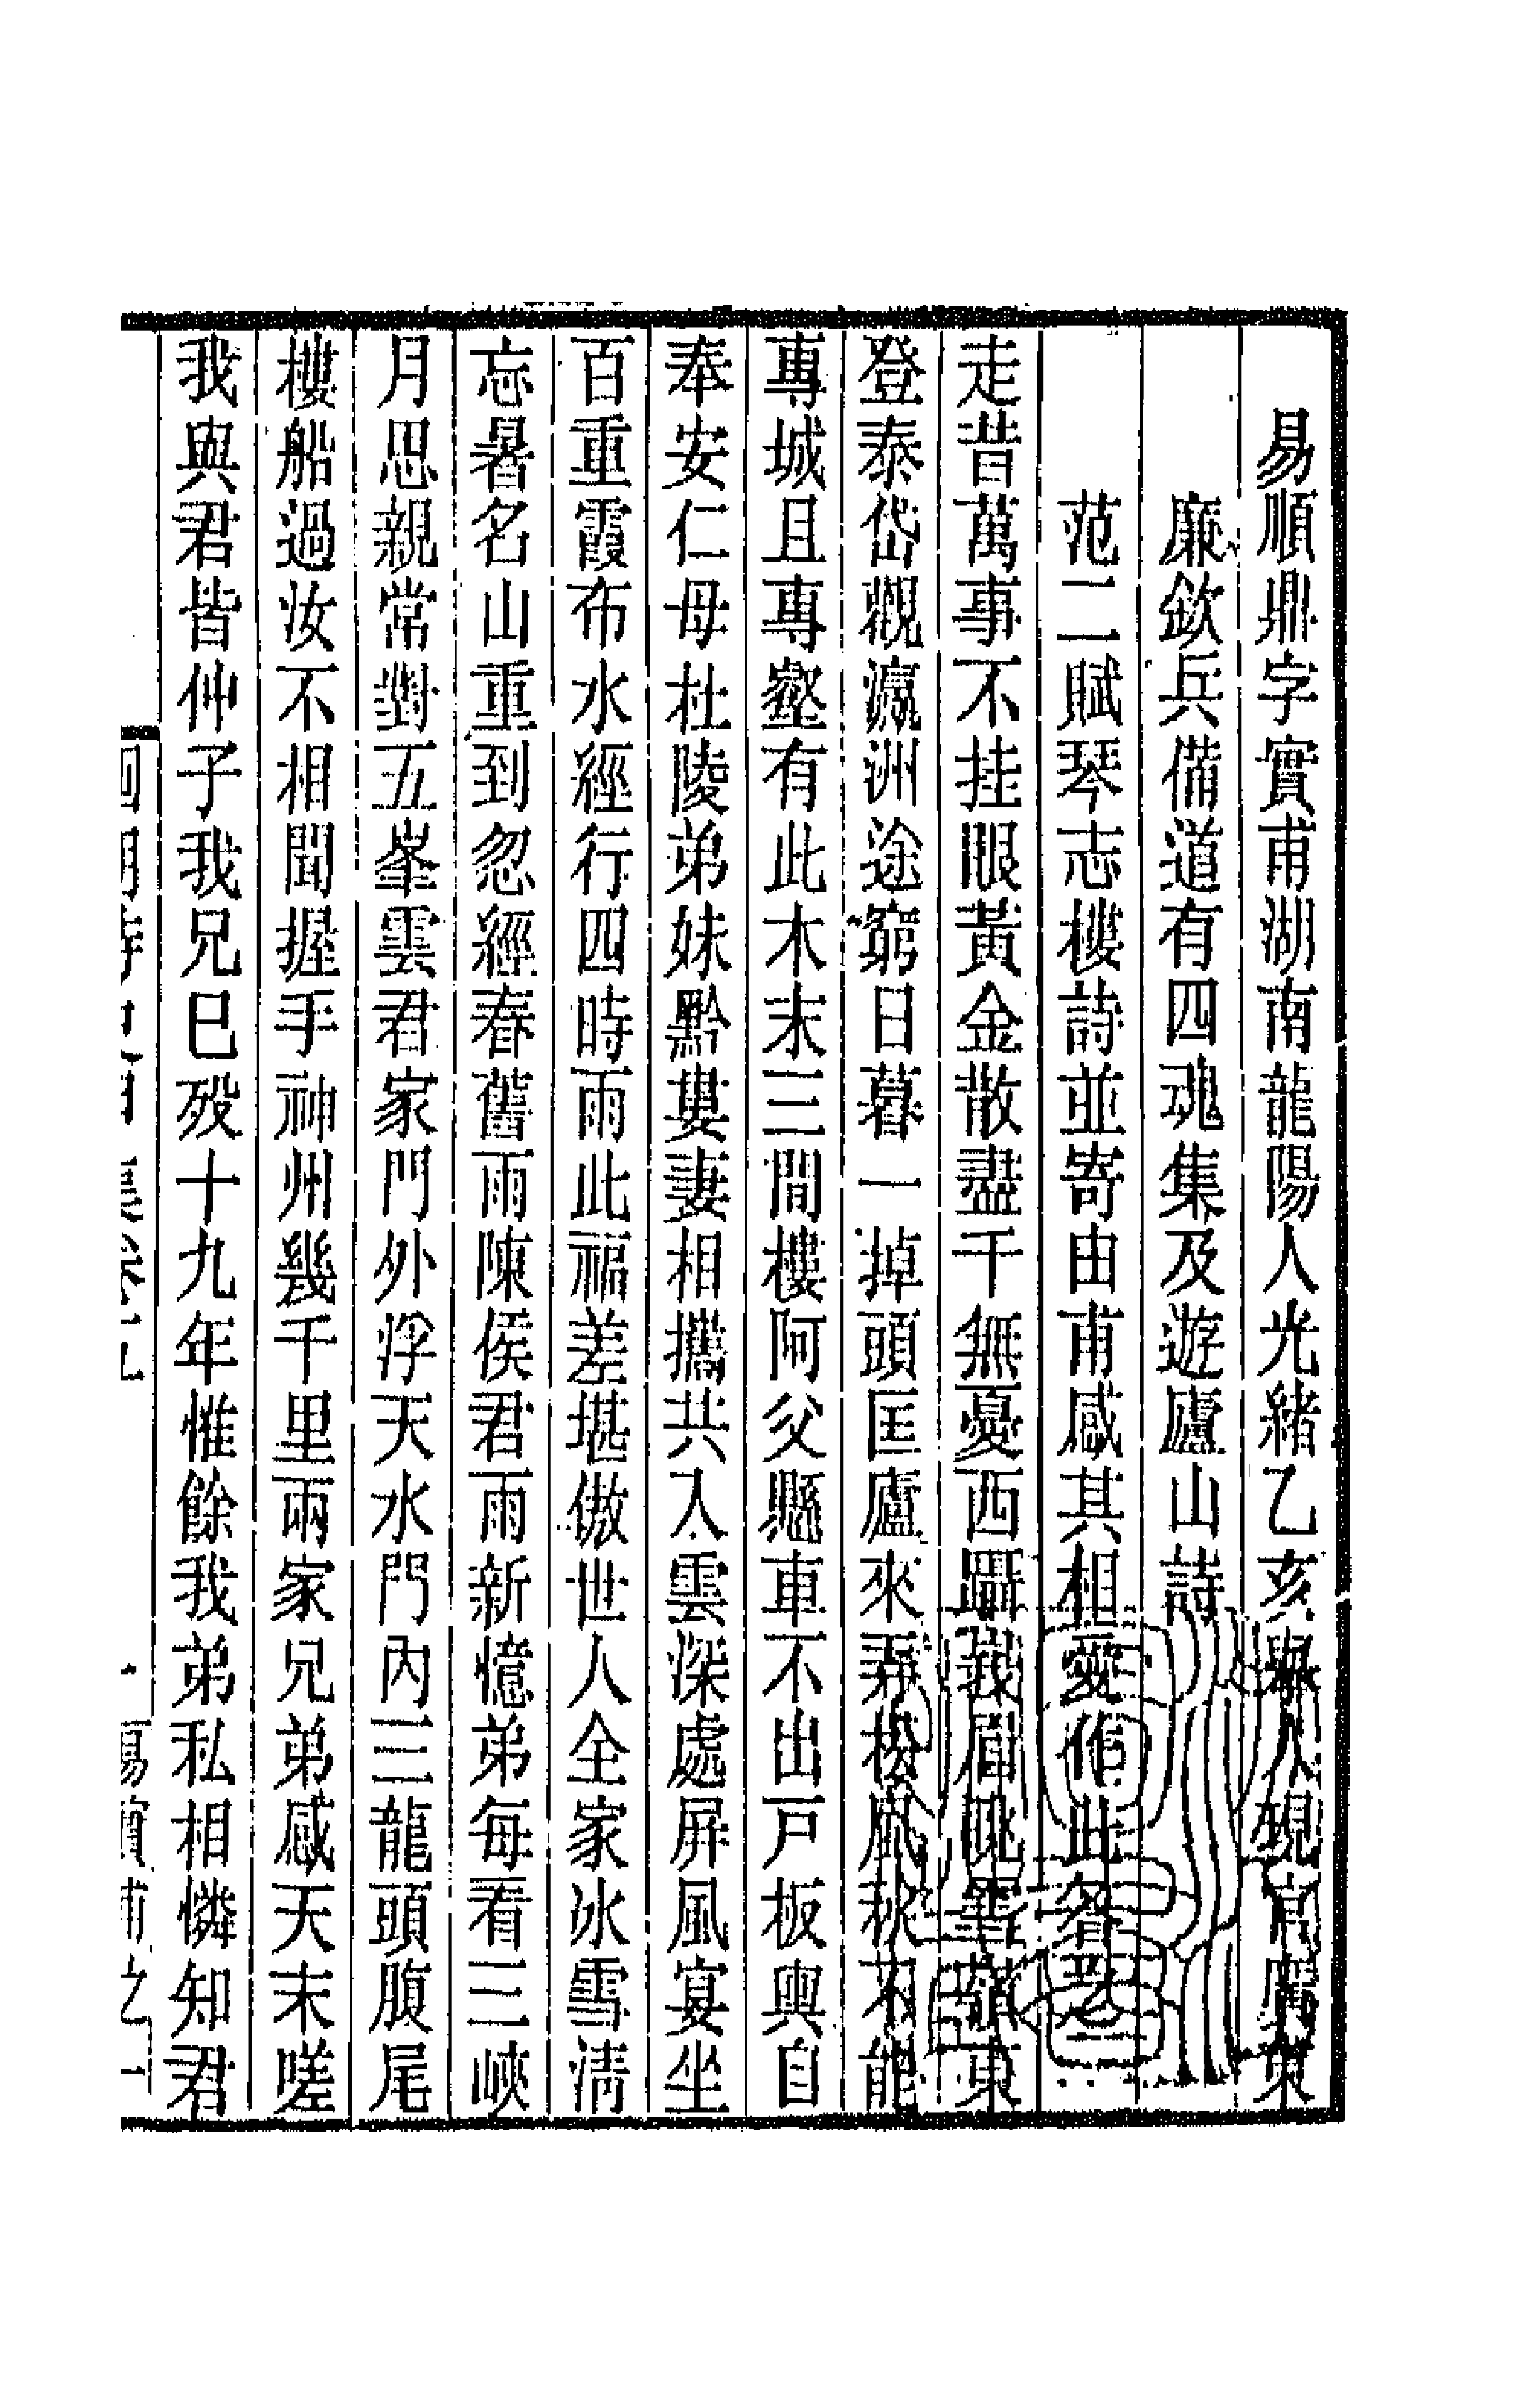 易順鼎字實甫湖南龍陽人光緒乙亥舉人現官廣東
廉欽兵備道有四魂集及遊廬山詩
范二賦琴志樓詩並寄由甫感其相愛作此答之
走昔萬事不挂眼黃金散盡千無憂西躡峨眉眺雪嶺東
登泰岱觀瀛洲途窮日暮一掉頭匡廬來弄松風秋不能
專城且專壑有此木末三間樓阿父懸車不出戶板輿自
奉安仁母杜陵弟妹黔婁妻相攜共入雲深處屏風宴坐
百重霞布水經行四時雨此福差堪傲世人全家冰雪清
忘暑名山重到忽經春舊雨陳侯君雨新憶弟每看三峽
月思親常對五峯雲君家門外浮天水門內三龍頭腹尾
樓船過汝不相聞握手神州幾千里兩家兄弟感天末嗟
我與君皆仲子我兄巳歿十九年惟餘我弟私相憐知君